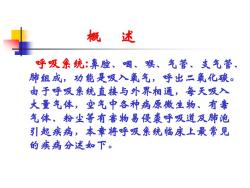 概 述
呼吸系统:鼻腔、咽、喉、气管、支气管、
肺组成,功能是吸入氧气,呼出二氧化碳。
由于呼吸系统直接与外界相通,每天吸入
大量气体,空气中各种病原微生物、有毒
气体、粉尘等有害物易侵袭呼吸道及肺泡
引起疾病,本章将呼吸系统临床上最常见
的疾病分述如下。